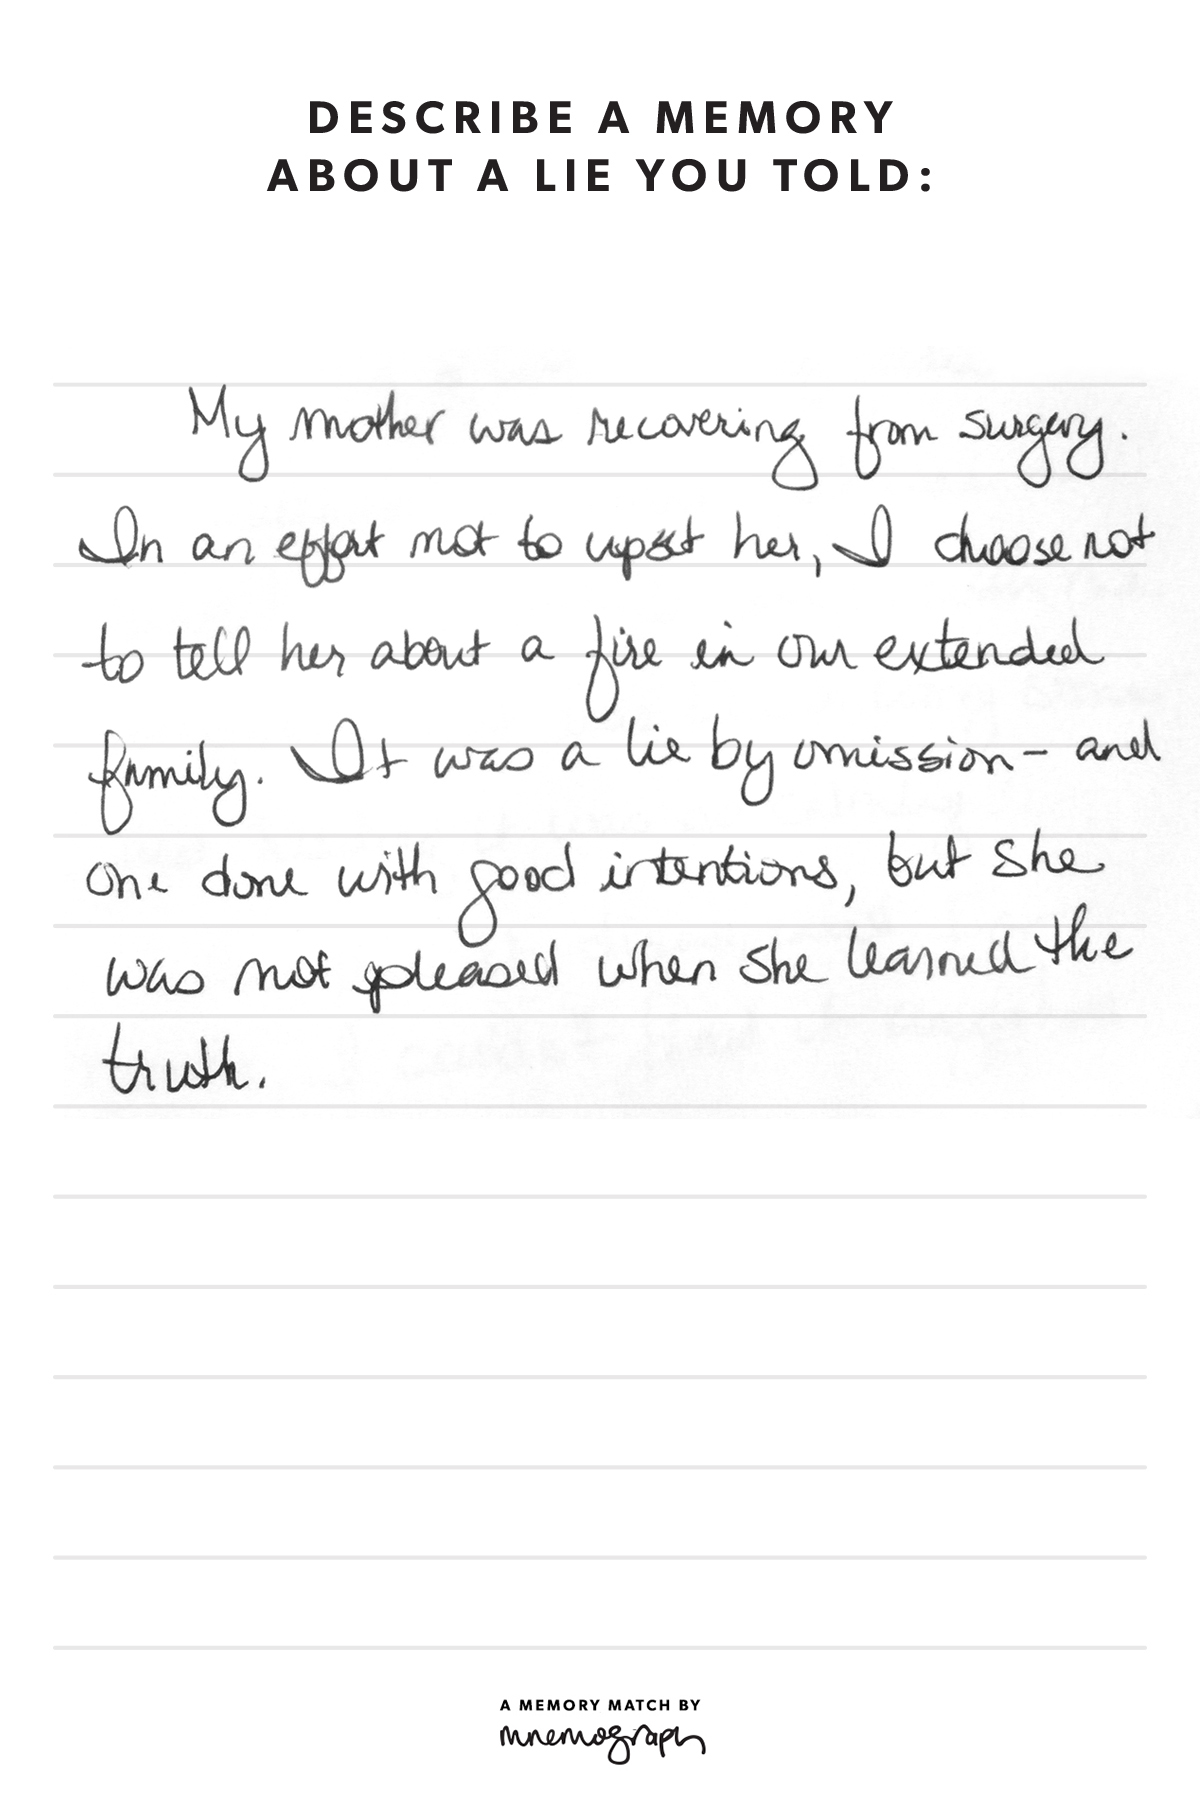 DESCRIBE A MEMORY
ABOUT A LIE YOU TOLD:
My mother was recovering from surgery.
In an effort not to upset her, I choose not
to tell her about a fire in our extended
family. It was a lie by omission - and
one done with good intentions, but she
was not pleased when she learned the
truth.
A MEMORY MATCH BY
mnemograph